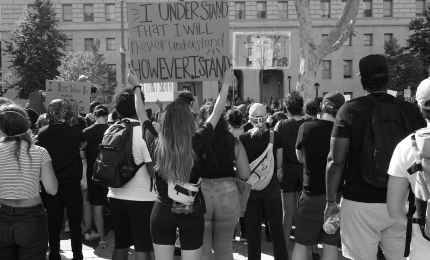 I UNDERSTAND
THAT I WILL
never understand
HOWEVER I STAND